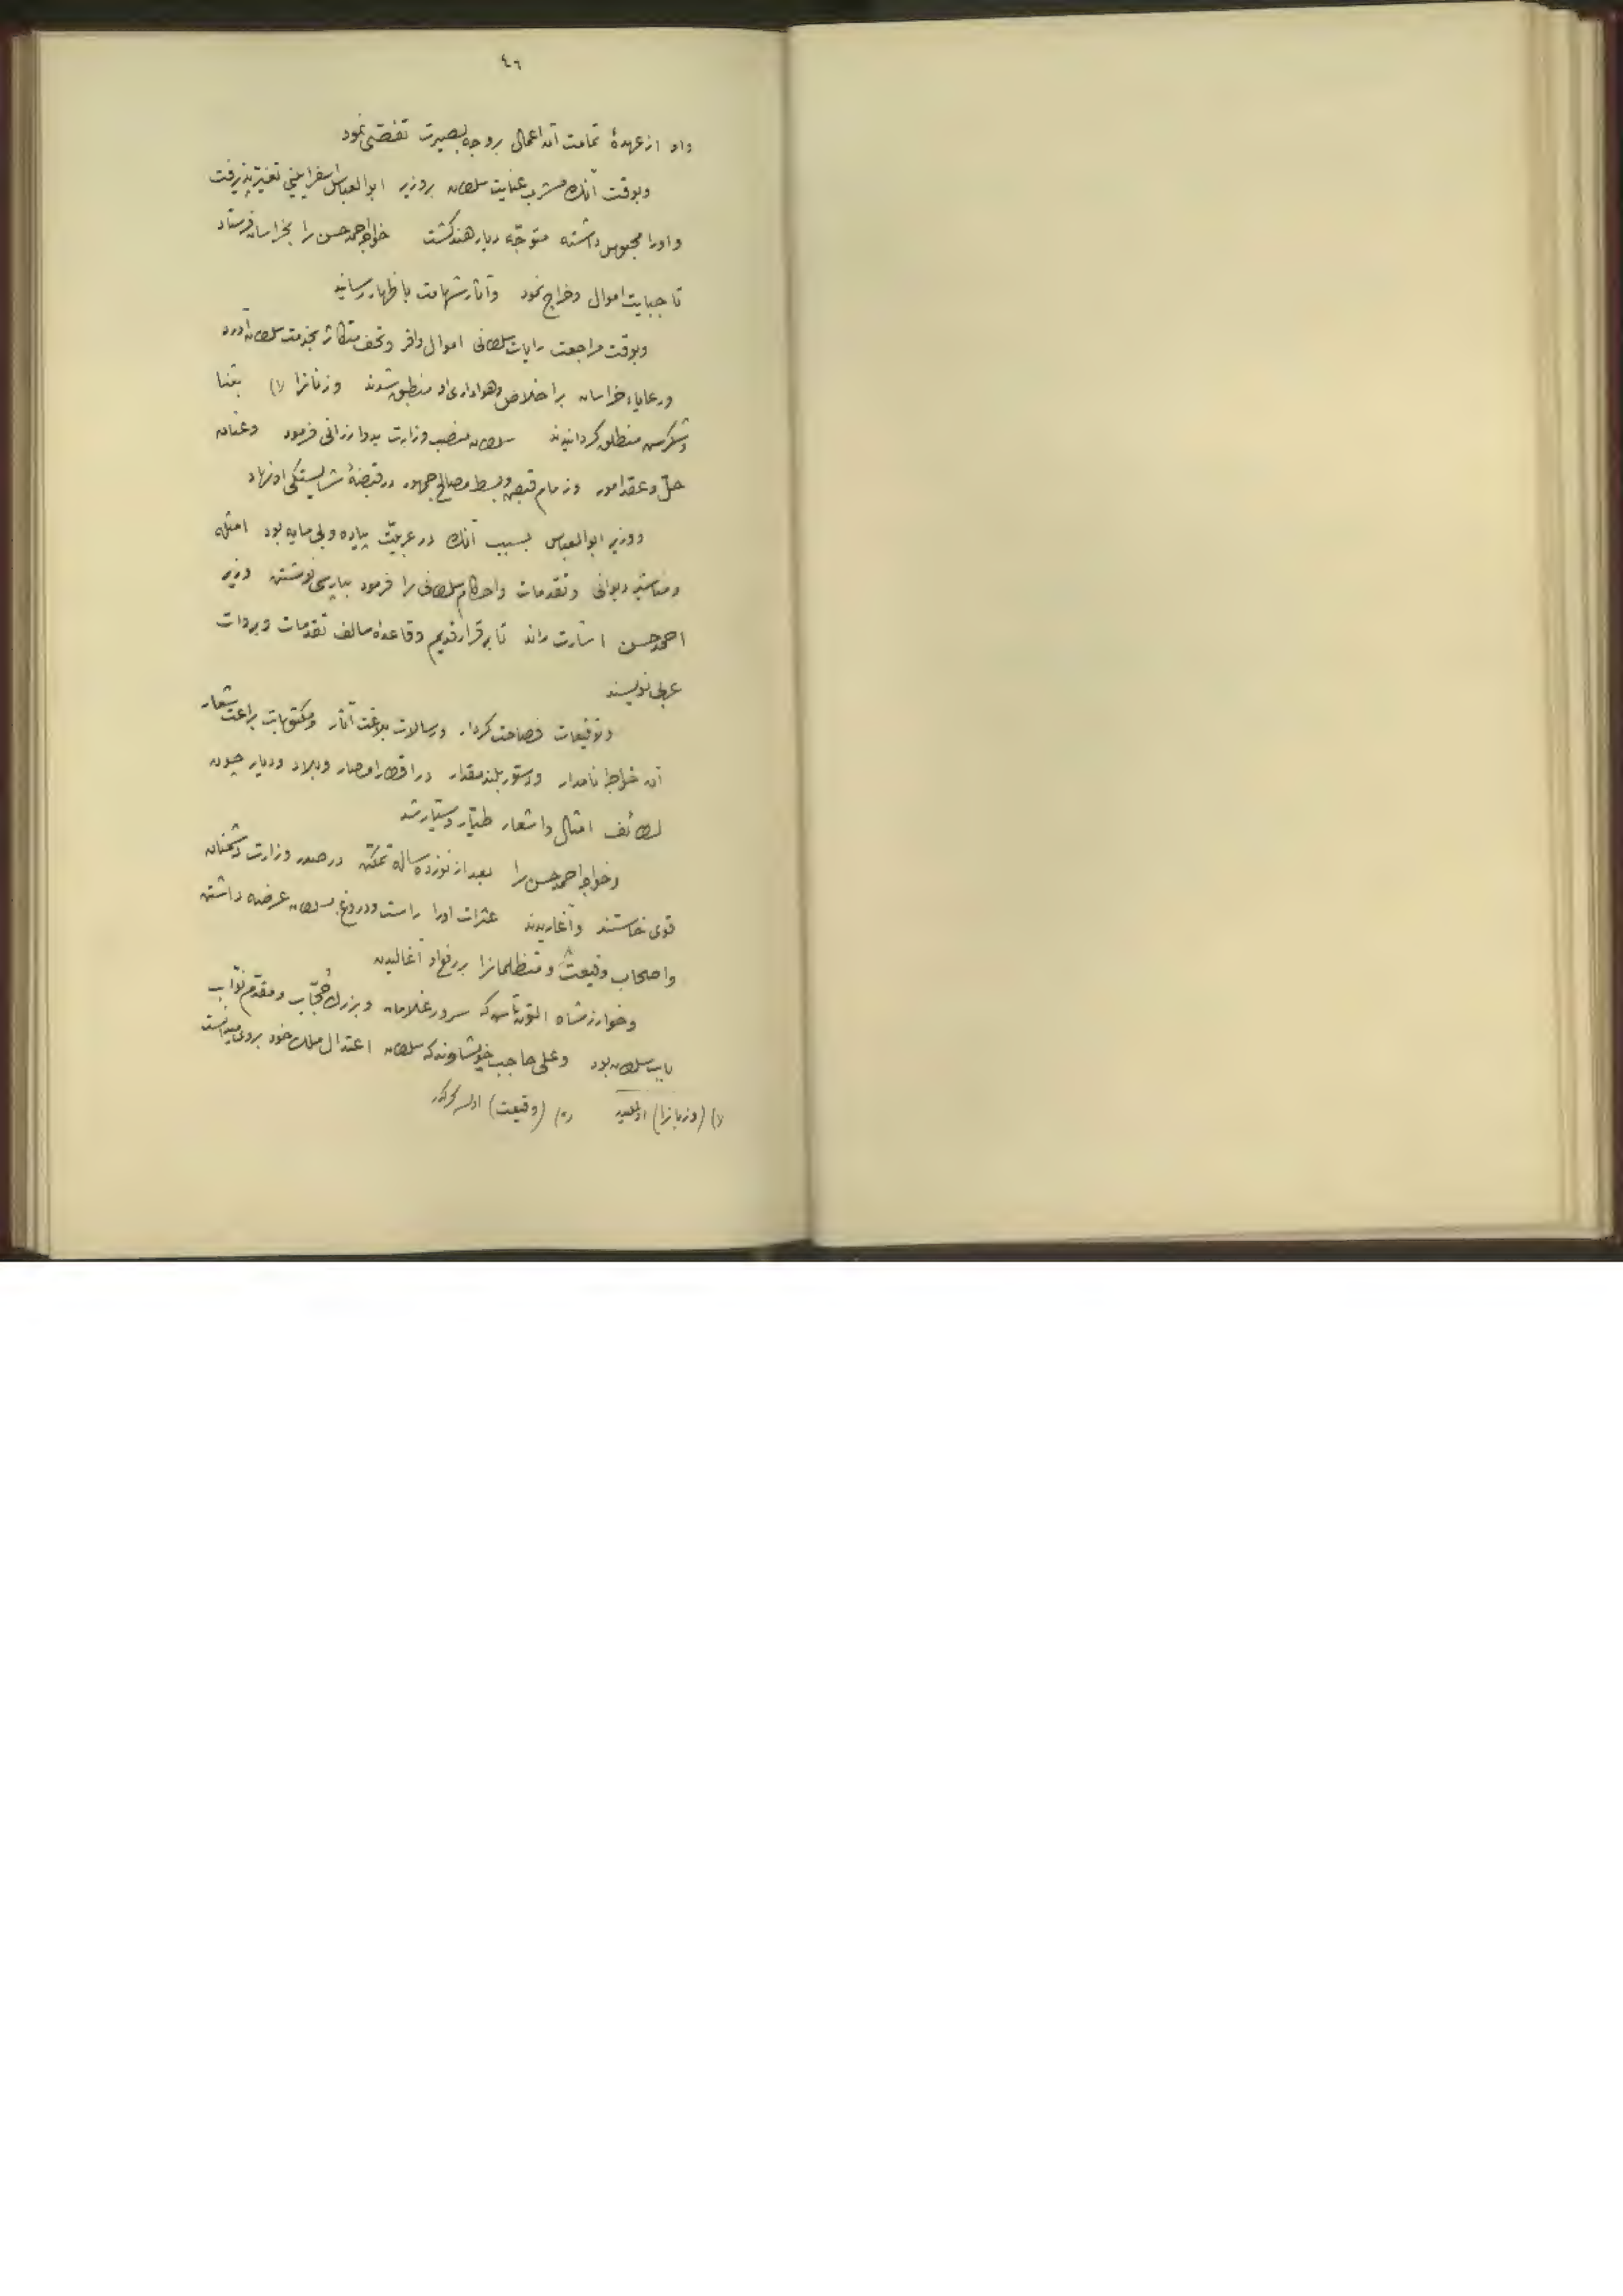 ٤٦
داد از عهدهٔ تمامت آن اعمال بر وجه بصیرت تفصّی نمود
وبوقت آنک مشرب عنایت سلطان بر وزیر ابو العباس اسفراینی تغیّر پذیرفت
و اورا محبوس داشته متوجّه دیار هند کشت خواجه احمد حسن را بخراسان فرستاد
تا جبایت اموال وخراج نمود وآثار شهامت باظهار رسانید
وبوقت مراجعت رایات سلطانی اموال وافر وتحف متکاثر بخدمت سلطان آورد
ورعایاء خراسان بر اخلاص وهواداری او منطبق شدند وزبانرا (۱) بثنا
وشکرش منطلق کردانیدند سلطان منصب وزارت بدو ارزانی فرمود وعنان
حلّ وعقد امور وزمام قبض وبسط مصالح جمهور در قبضهٔ شایستکی او نهاد
ووزیر ابو العباس بسبب آنک در عربیّت پیاده وبی مایه بود امثله
ومناشیر دیوانی وتقدمات واحکام سلطانی را فرمود بپارسی نوشتن وزیر
احمد حسن اشارت راند تا بر قرار قدیم وقاعدهٔ سالف تقدمات وبروات
عربی نویسند
وتوقیعات فصاحت کردار ورسالات بلاغت آثار ومکتوبات براعت شعار
آن خواجهٔ نامدار ودستور بلند مقدار در اقطار امصار وبلاد ودیار چون
لطائف امثال واشعار طیّار وسیّار شد
وخواجه احمد حسن را بعد از نوزده ساله تمکّن در صدر وزارت دشمنان
قوی خاستند وآغازیدند عثرات اورا راست ودروغ بسلطان عرضه داشتن
واصحاب وقیعت و متظلمانرا بر رفع او آغالیدن
وخوارزمشاه التونتاش که سرور غلامان وبزرک حُجّاب ومقدّم نوّاب
باب سلطان بود وعلی حاجب خویشاوند که سلطان اعتدال ملک خود بر وی میدانست
(۱) (وزبانرا) (٢) (وقیعت)